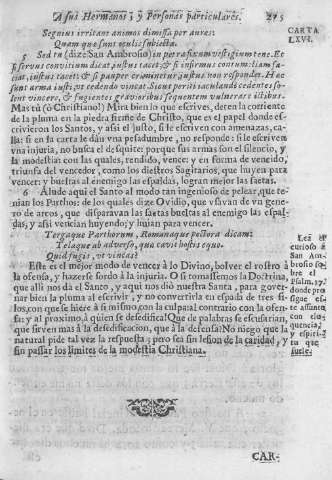 A sus Hermanos; y Personas particulares. 275
CARTA
LXVI.
Segnius irritant animos dimissa per aures:
Quam quæ sunt oculis subiecta.
5 Sed tu (dize San Ambrosio)
si servus convitium dicat, iustus tacet: & si infirmus contumeliam faciat,
iustus tacet: & si pauper criminetur, iustus non respondet. Hæc
sunt arma iusti, ut cedendo vincat. Sicut periti iaculandi cedentes solent
vincere, & fugientes gravioribus sequentem vulnerare ictibus.
Mas tù (ò Christiano!) Mira bien lo que escrives, deten la corriente
de la pluma en la piedra firme de Christo, que es el papel donde escrivieron
los Santos, y assi el Justo, si le escriven con amenazas, calla:
si en la carta le dàn vna pesadumbre, no responde: si le escriven
vna injuria, no busca el desquite: porque sus armas son el silencio, y
la modestia: con las quales, rendido, vence: y en forma de vencido,
triunfa del vencedor, como los diestros Sagitarios, que huyen para
vencer: y bueltas al enemigo las espaldas, logran mejor las saetas.
6 Alude aqui el Santo al modo tan ingenioso de pelear, que tenian
los Parthos: de los quales dize Ovidio, que vsavan de vn genero
de arcos, que disparavan las saetas bueltas al enemigo las espaldas,
y assi vencian huyendo; y huian para vencer.
Tergaque Parthorum, Romanaque pectora dicam:
Telaque ab adverso, quæ iacit hostis equo.
Qui fugis, ut vincas?
Este es el mejor modo de vencer à lo Divino, bolver el rostro à
la ofensa, y hazerse sordo à la injuria. O si tomassemos la Doctrina,
que alli nos dà el Santo, y aqui nos diò nuestra Santa, para governar
bien la pluma al escrivir, y no convertirla en espada de tres filos,
con que se hiere à si mismo, con la culpa: al contrario con la ofensa:
y al proximo à quien se desedifica! Que de palabras se escusarian,
que sirven mas à la desedificacion, que à la defensa! No niego que la
natural pide tal vez la respuesta; pero sea sin lesion de la caridad, y
sin passar los limites de la modestia Christiana.
Lea el
curioso à
San Ambrosio
sobre el
Psalm. 37
donde prosigue
este assunto,
con eloquencia,
y espiritu
que
suele.
CAR-